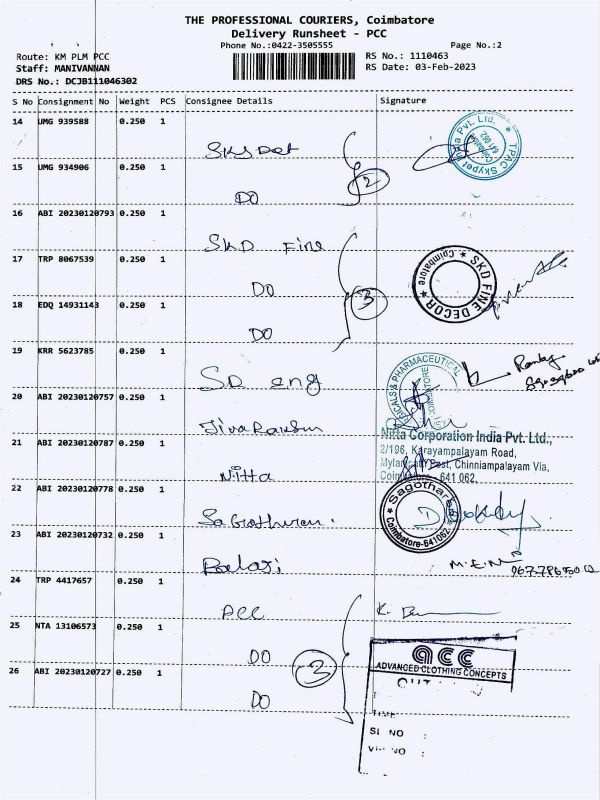 THE PROFESSIONAL COURIERS, Coimbatore
Delivery Runsheet - PCC
Phone No.:0422-3505555
Page No.:2
Route: KM PLM PCC
RS No.: 1110463
Staff: MANIVANNAN
RS Date: 03-Feb-2023
DRS No.: DCJB111046302
S No Consignment No Weight PCS Consignee Details Signature
14 UMG 939588 0.250 1
TPAC Skypet India Pvt. Ltd.
Coimbatore
641 062
15 UMG 934906 0.250 1
DO
2
16 ABI 20230120793 0.250 1
SKD Fine
17 TRP 8067539 0.250 1
DO
3
SKD FINE DECOR
Coimbatore
18 EDQ 14931143 0.250 1
DO
19 KRR 5623785 0.250 1
SD eng
20 ABI 20230120757 0.250 1
& PHARMACEUTICAL
COIMBATORE
21 ABI 20230120787 0.250 1
Nitta
Nitta Corporation India Pvt. Ltd.,
2/196, Karayampalayam Road,
Post, Chinniampalayam Via,
641 062.
22 ABI 20230120778 0.250 1
Coimbatore-641062
23 ABI 20230120732 0.250 1
Balaji
24 TRP 4417657 0.250 1
acc
25 NTA 13106573 0.250 1
DO
3
acc
ADVANCED CLOTHING CONCEPTS
26 ABI 20230120727 0.250 1
DO
SI NO :
NO :